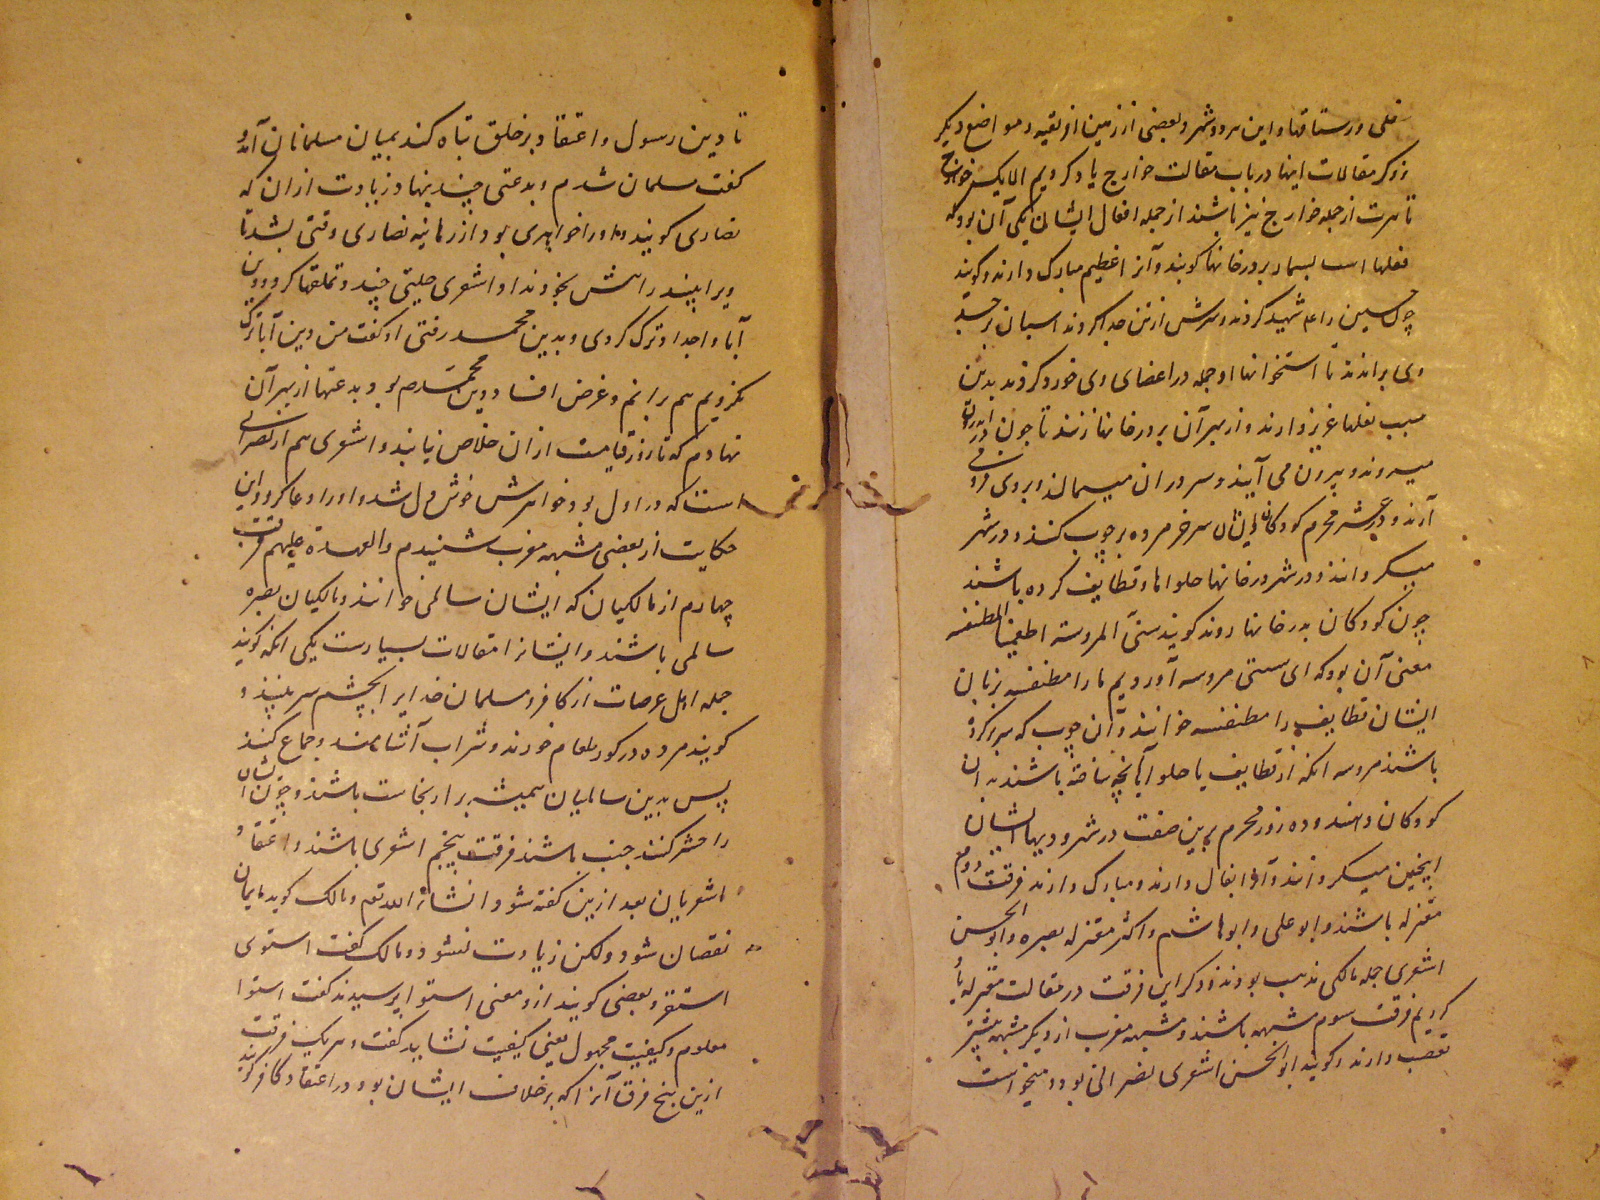 فلی و رستاقها و این هر دو شهر و بعضی از زمین افریقیه و مواضع دیگر
و ذکر مقالات اینها در باب مقالت خوارج یاد کردیم الا یک
تاهرت از جمله خوارج نیز باشند از جمله افعال ایشان یکی آن بود که
نعلها اسب بسمار بر در خانها کوبند و آنرا عظیم مبارک دارند و گویند
چون حسین را ع شهید کردند و سرش از تن جدا کردند اسبان بر جسد
وی براندند تا استخوانها او جمله در اعضای وی خورد کردند بدین
سبب نعلها عزیز دارند و از بهر آن بر در خانها زنند تا چون
میروند و بیرون می آیند و سر در آن میمالند و بروی فرو می
آرند و در عشر محرم کودکان ایشان سر خر مرده بر چوب کنند و در شهر
میگردانند و در شهر در خانها حلواها و قطایف کرده باشند
چون کودکان بدر خانها روند گویند ستی المروسه اطعمینا المطنفسه
معنی آن بود که ای ستی مروسه آوردیم ما را مطنفسه بزبان
ایشان قطایف را مطنفسه خوانند و آن چوب که سر بر کرده
باشند مروسه آنکه از قطایف یا حلوا آنچه ساخته باشند بدان
کودکان دهند و ده روز محرم برین صفت در شهر و دیها ایشان
اینچنین میگردانند و آنرا بفال دارند و مبارک دارند فرقت دوم
معتزله باشند و ابو علی و ابو هاشم و اکثر معتزله بصره و ابو الحسن
اشعری جمله مالکی مذهب بودند و ذکر این فرقت در مقالت معتزله یاد
کردیم فرقت سوم مشبهه باشند و مشبهه مغرب از دیگر مشبهه بیشتر
تعصب دارند و گویند ابو الحسن اشعری نصرانی بود و میخواست
تا دین رسول و اعتقاد بر خلق تباه کند بمیان مسلمانان آمد
گفت مسلمان شدم و بدعتی چند بنهاد زیادت از آن که
نصاری گویند و او را خواهری بود از رهابنه نصاری وقتی بشد تا
ویرا ببیند راهش بخود نداد اشعری حیلتی چند و تملقها کرد و
آبا و اجداد ترک کردی و بدین محمد رفتی او گفت من دین آبا ترک
نکردیم هم بر انم و غرض افساد دین محمد بود و بدعتها از بهر آن
نهادم که تا روز قیامت از آن خلاص نیابند و اشعری هم از نصرانی
است که در اول بود خواهرش خوش دل شد و او را دعا کرد و این
حکایت از بعضی مشبهه مغرب شنیدم والعهدة علیهم فرقت
چهارم از مالکیان که ایشان سالمی خوانند و مالکیان بصره
سالمی باشند و ایشانرا مقالات بسیارست یکی آنکه گویند
جمله اهل عرصات از کافر و مسلمان خدایرا بچشم سر ببینند و
گویند مرده در گور طعام خورند و شراب آشامند و جماع کنند
پس بدین سالمیان همیشه بر او نجاست باشند و چون ایشان
را حشر کنند جنب باشند فرقت پنجم اشعری باشند و اعتقاد
اشعریان بعد ازین گفته شود انشاء الله تعم و مالک گوید ایمان
نقصان شود ولکن زیادت نشود و مالک گفت استوی
استقر و بعضی گویند از و معنی استوا پرسیدند گفت استوا
معلوم و کیفیت مجهول یعنی کیفیت نشاید گفت و هر یک فرقت
ازین پنج فرق آنرا که بر خلاف ایشان بود در اعتقاد کافر گویند